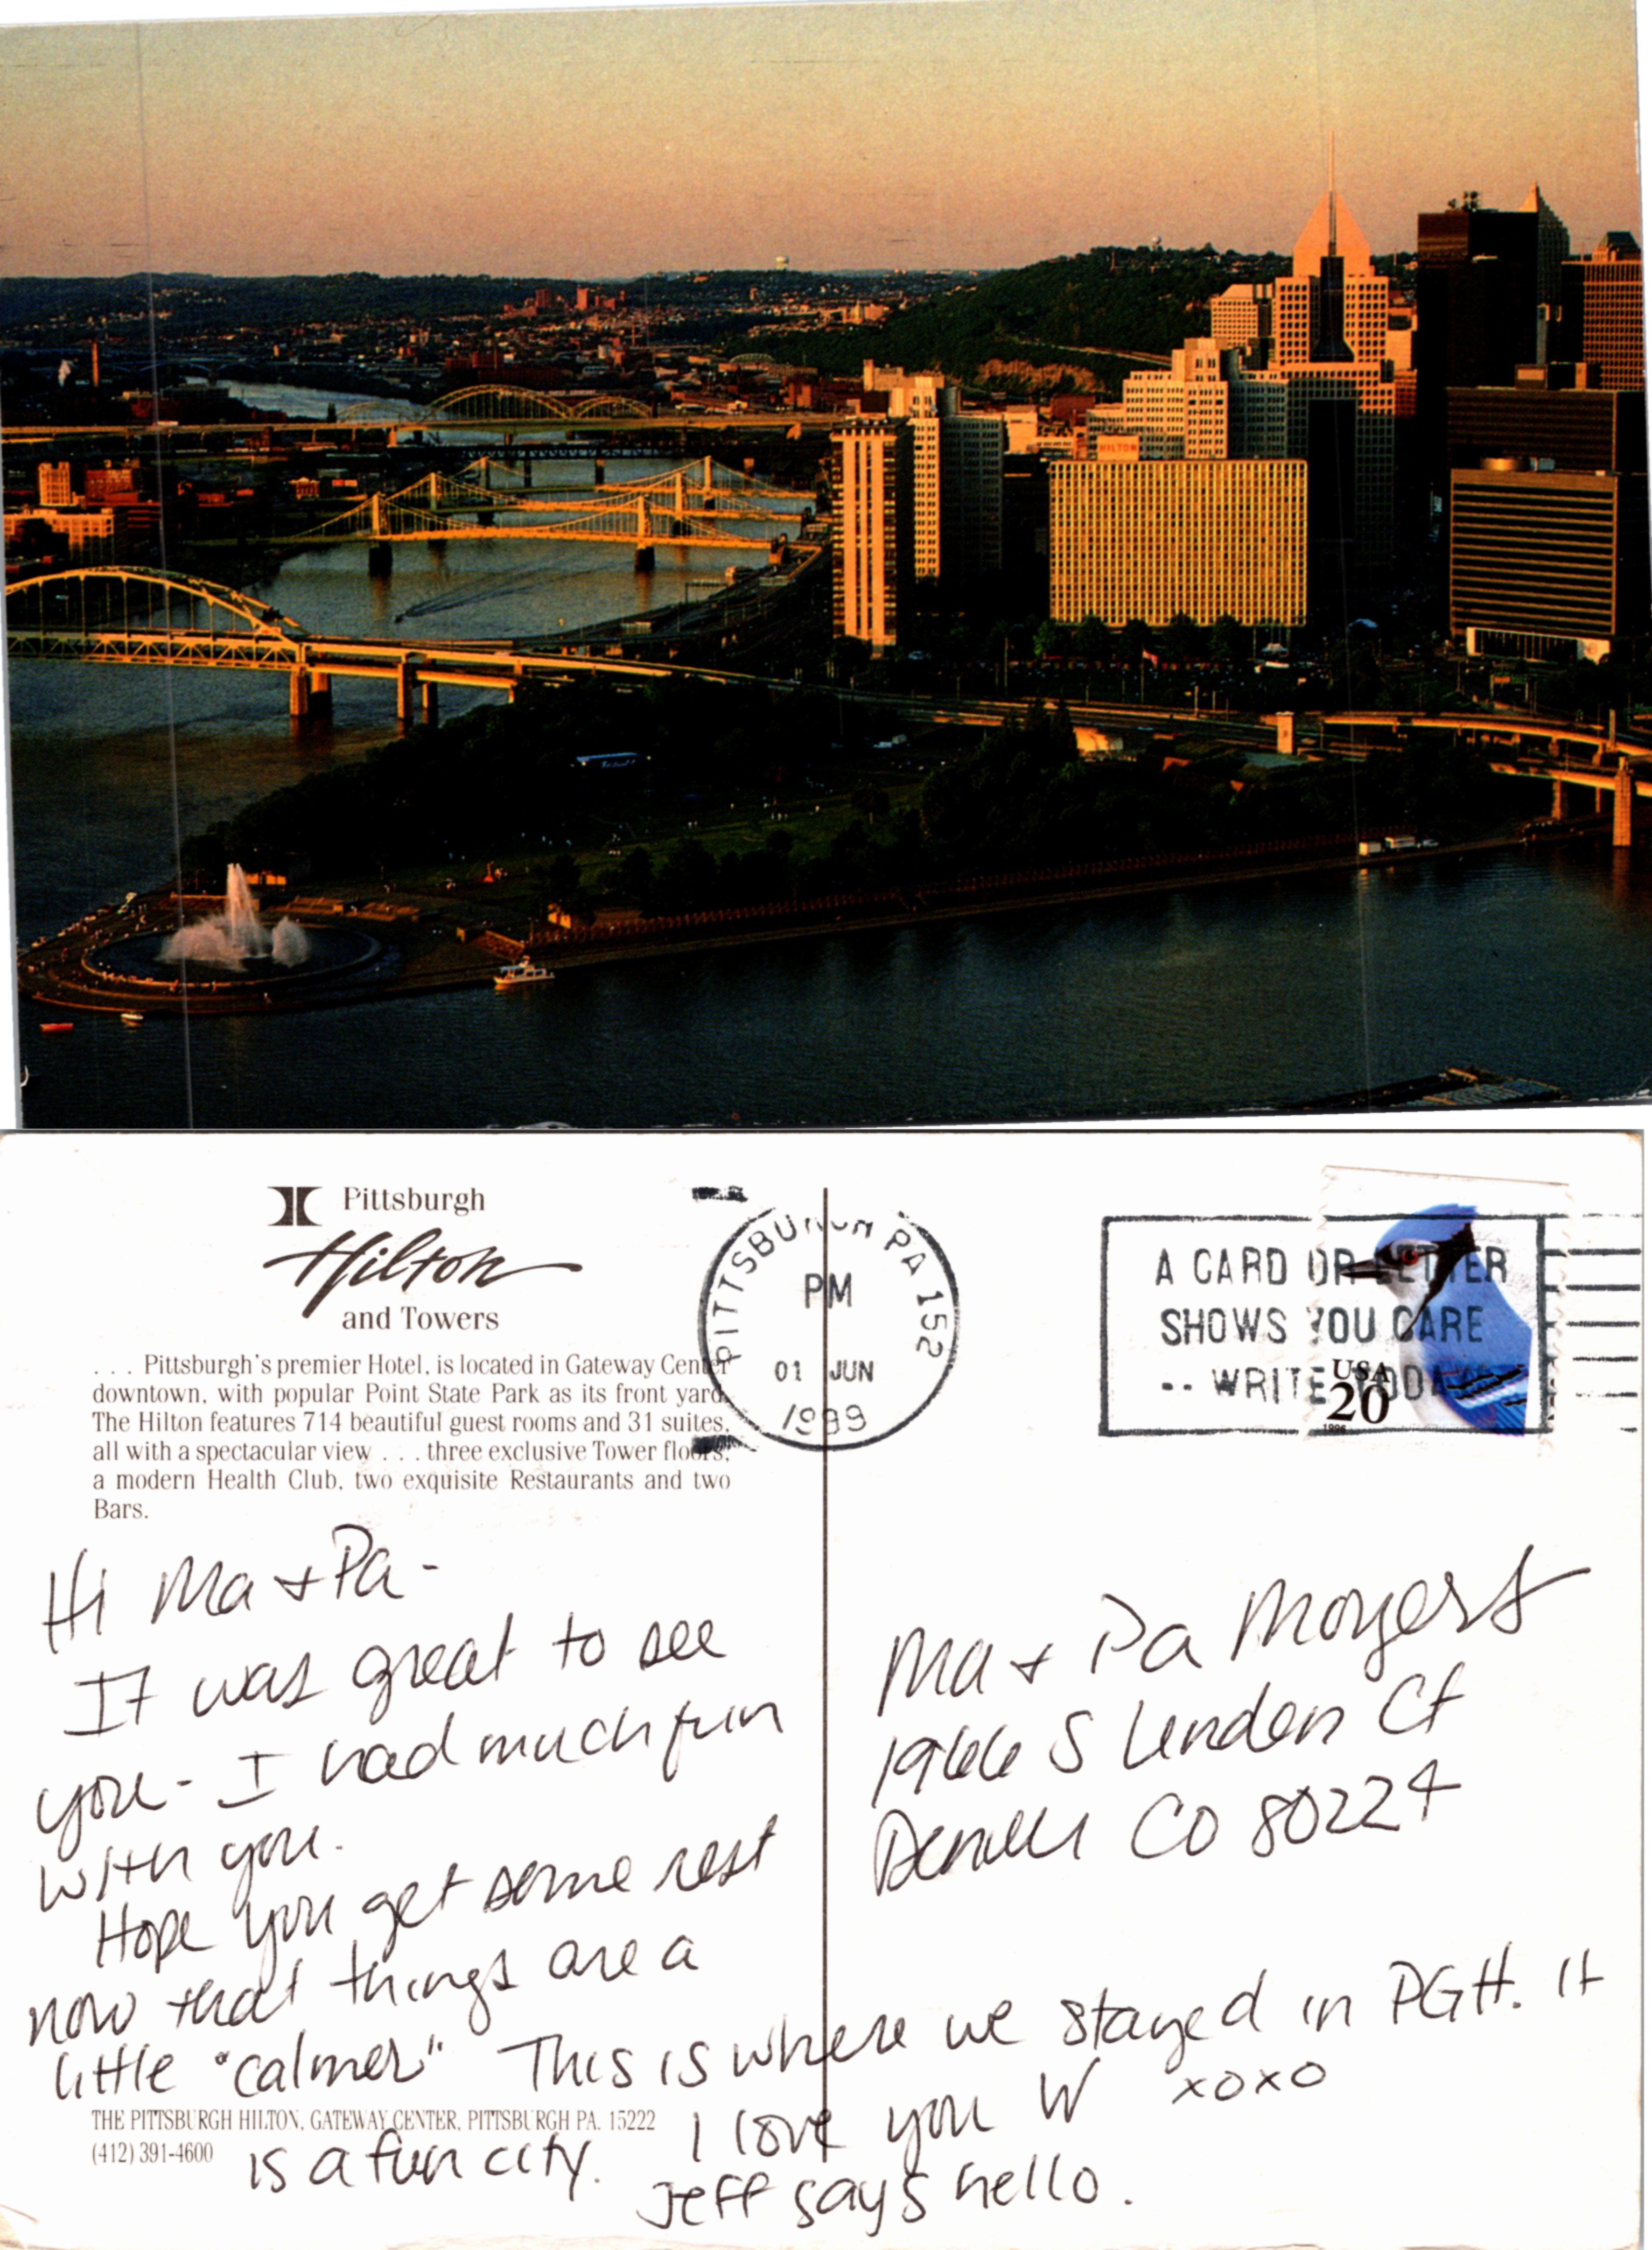 HILTON
Pittsburgh
Hilton
and Towers
. . . Pittsburgh's premier Hotel, is located in Gateway Center
downtown, with popular Point State Park as its front yard.
The Hilton features 714 beautiful guest rooms and 31 suites,
all with a spectacular view . . . three exclusive Tower floors,
a modern Health Club, two exquisite Restaurants and two
Bars.
PITTSBURGH PA 152
PM
01 JUN
1999
A CARD OR LETTER
SHOWS YOU CARE
-- WRITE TODAY
USA
20
1996
Hi Ma + Pa -
It was great to see
you - I had much fun
with you.
Hope you get some rest
now that things are a
little "calmer" This is where we stayed in PGH. It
is a fun city. I love you W xoxo
Jeff says hello.
Ma + Pa Moyers
1966 S Linden Ct
Denver CO 80224
THE PITTSBURGH HILTON, GATEWAY CENTER, PITTSBURGH PA. 15222
(412) 391-4600